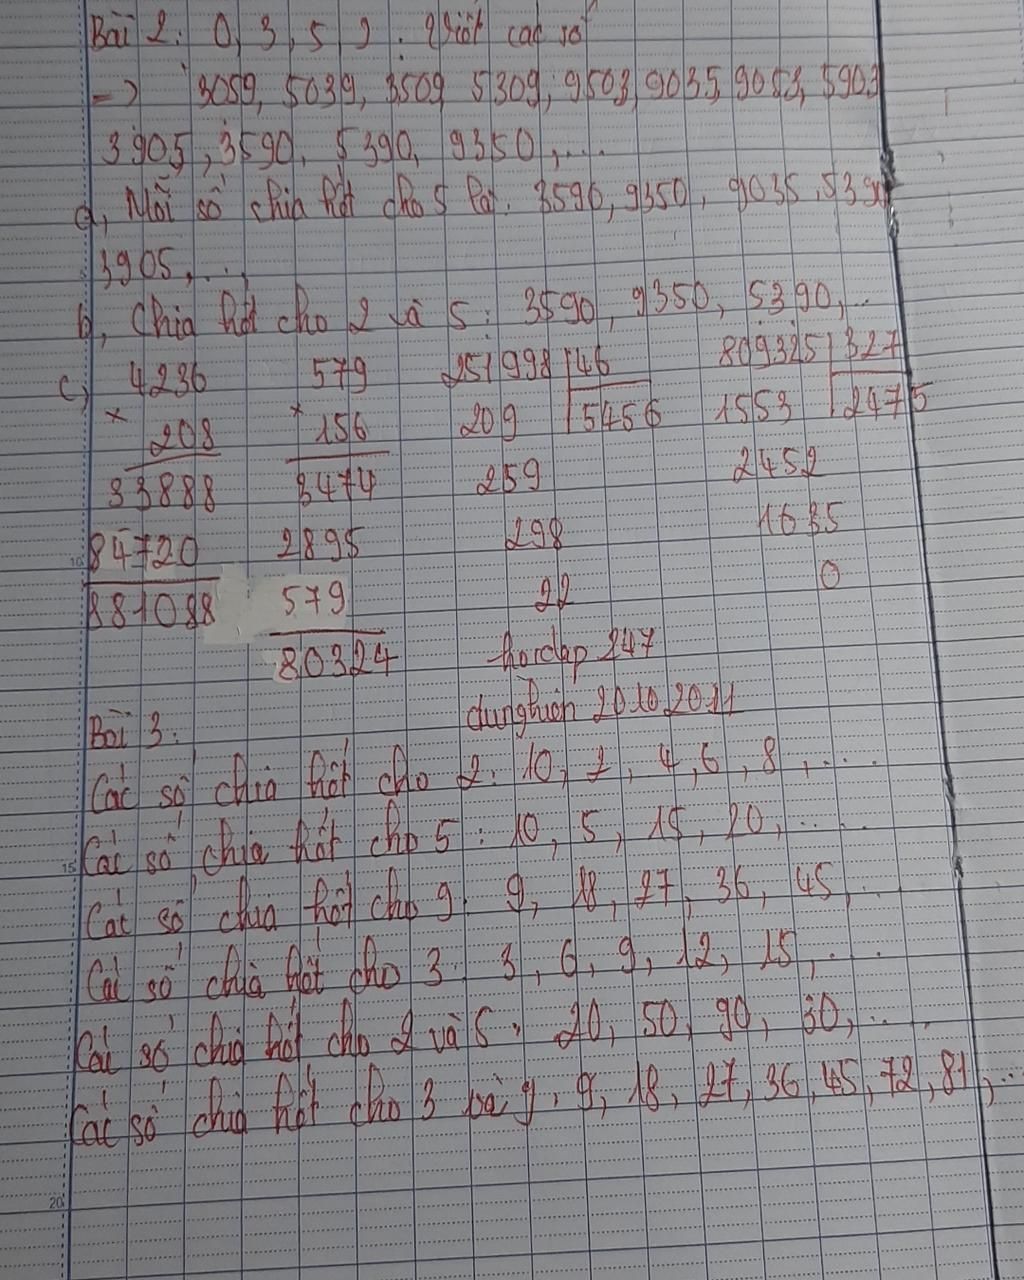 Bài 2: 0, 3, 5, 9. Viết các số
-> 3059, 5039, 3509 5309, 9503, 9035, 9053, 5903
3905, 3590, 5390, 9350, ....
a, Mỗi số chia hết cho 5 là: 3590, 9350, 9035, 5390
3905, ...
b, Chia hết cho 2 và 5: 3590, 9350, 5390, ...
c, 4236 579 251998 46 809325 327
× 208 × 156 209 5456 1553 2475
33888 3474 259 2452
84720 2895 298 1635
881088 579 22 0
80324 hoidap 247
Bài 3: dunghuen 20.10.2011
Các số chia hết cho 2: 10, 2, 4, 6, 8, ....
Các số chia hết cho 5: 10, 5, 15, 20, ....
Các số chia hết cho 9: 9, 18, 27, 36, 45, ..
Các số chia hết cho 3: 3, 6, 9, 12, 15, ..
Các số chia hết cho 2 và 5: 20, 50, 90, 30, ...
Các số chia hết cho 3 và 9: 9, 18, 27, 36, 45, 72, 81, ...